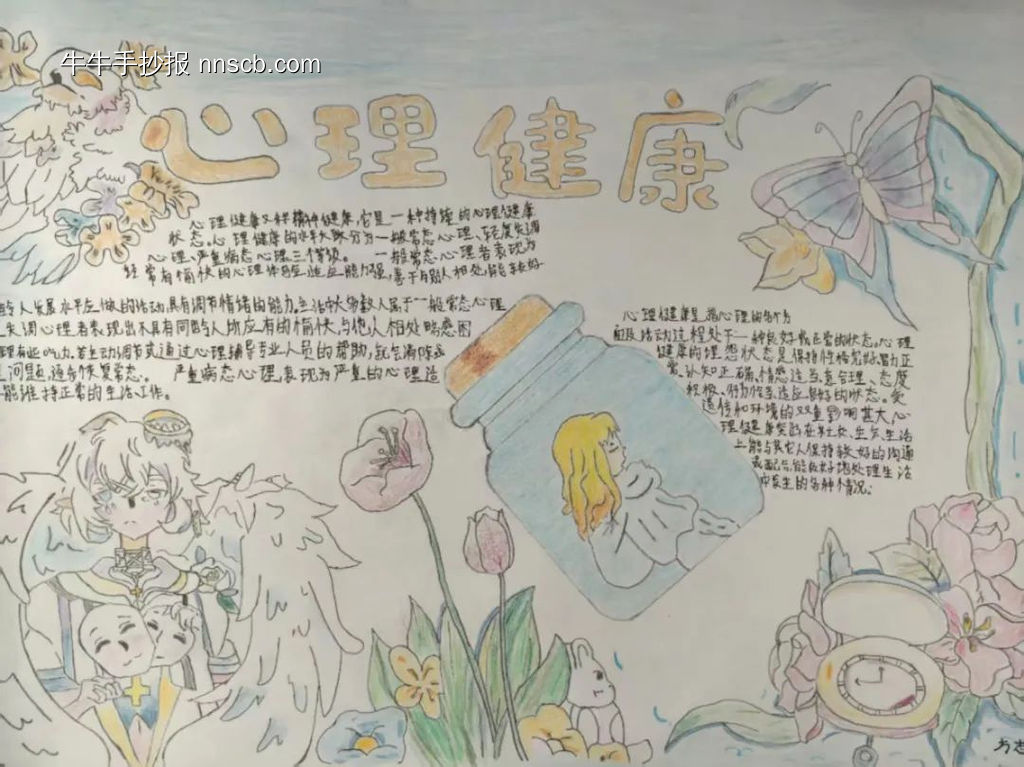 牛牛手抄报 nnscb.com
心理健康
心理健康又称精神健康,它是一种持续的心理健康
状态。心理健康的水平大致分为一般常态心理、轻度失调
心理、严重病态心理三个等级。 一般常态心理者表现为
经常有愉快的心理体验,适应能力强,善于与别人相处,能较好
龄人发展水平应做的活动,具有调节情绪的能力。生活中大多数人属于一般常态心理
失调心理者表现出不具有同龄人所应有的愉快,与他人相处略感困
理有些吃力。若主动调节或通过心理辅导专业人员的帮助,就会消除
问题,逐步恢复常态。 严重病态心理,表现为严重的心理适
能维持正常的生活、工作。
心理健康是指心理的各个方
面及活动过程处于一种良好或正常的状态。心理
健康的理想状态是保持性格完好、智力正
常、认知正确、情感适当、意志合理、态度
积极、行为恰当、适应良好的状态。受
遗传和环境的双重影响甚大,心
理健康突出在社交、生产、生活
上能与其它人保持较好的沟通
或配合,能良好地处理生活
中发生的各种情况。